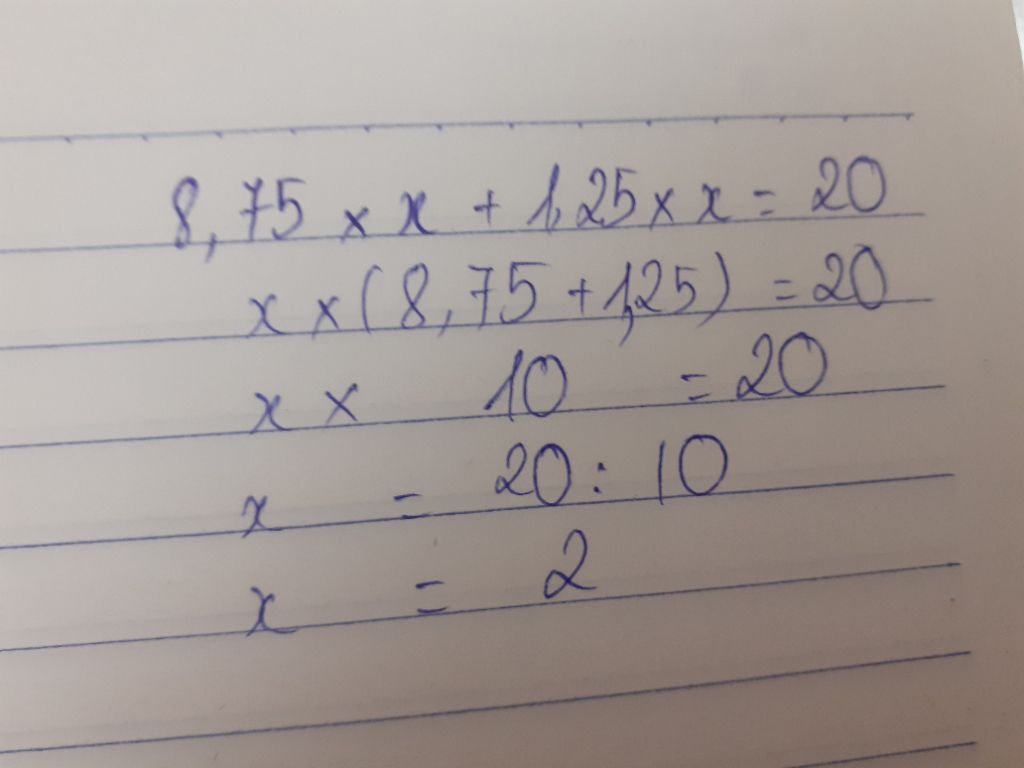 8,75 × x + 1,25 × x = 20
x × (8,75 + 1,25) = 20
x × 10 = 20
x = 20 : 10
x = 2